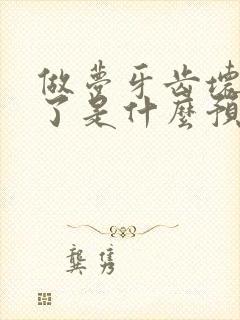 做夢牙齿壞
了是什麼預
龔隽